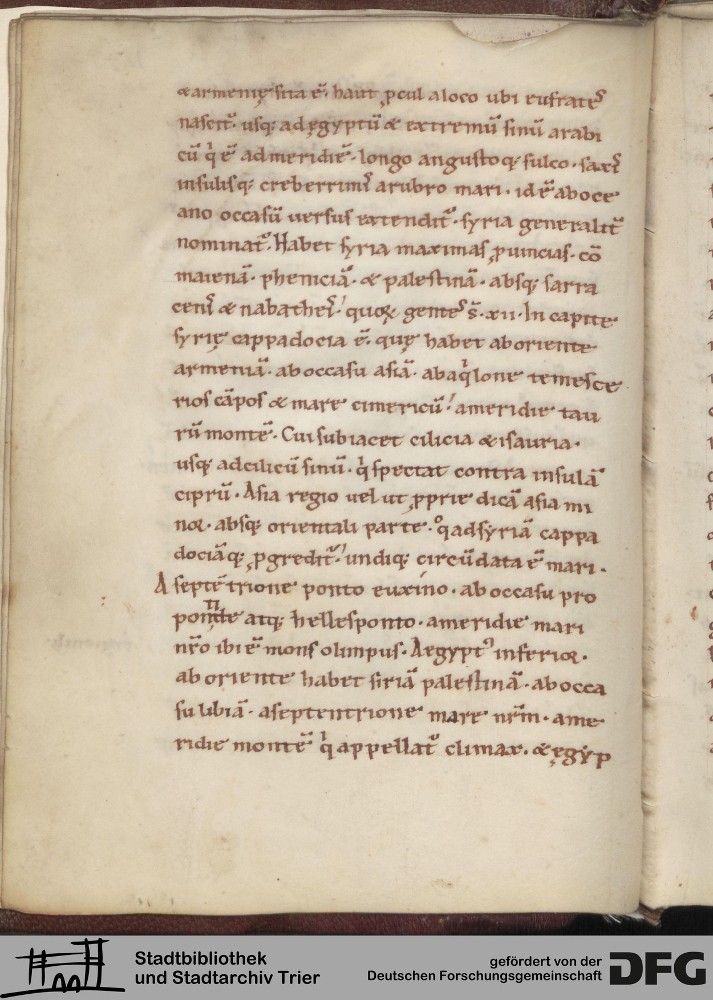 & armenię sita ē· haut ꝓcul aloco ubi eufrateˢ
nascit᷑· usq; ad ęgyptū & extremū sinū arabi
cū q̇ ē ad meridiē· longo angustoq; sulco· saxiˢ
insulisq; creberrimiˢ arubro mari· id ē aboce
ano occasū uersus extendit᷑· syria generalit᷑
nominat᷑· Habet syria maximas ꝓuincias· cō
maienā· pheniciā· & palestinā· absq; sarra
ceniˢ & nabatheiˢ! quoꝝ genteˢ s̄· xii· In capite
syrię cappadocia ē· quę habet aboriente
armeniā· ab occasu asiā· abaq̇lone temesce
rios cāpos & mare cimericū! ameridie tau
rū montē· Cui subiacet cilicia & isauria·
usq; adciliciū sinū· q̇ spectat contra insulā
ciprū· Asia regio uel ut ꝓprie dicā asia mi
nor· absq; orientali parte· qͦ ad syriā cappa
dociāq; ꝓgredit᷑! undiq; circūdata ē mari·
A septētrione ponto euxino· ab occasu pro
pontide atq; hellesponto· ameridie mari
nr̄o ibi ē mons olimpus· Aegyptꝰ inferior·
ab oriente habet siriā palestinā· abocca
su libiā· aseptentrione mare nr̄m· ame
ridie montē q̇ appellat᷑ climax· & ęgyp
Stadtbibliothek
und Stadtarchiv Trier
gefördert von der
Deutschen Forschungsgemeinschaft
DFG